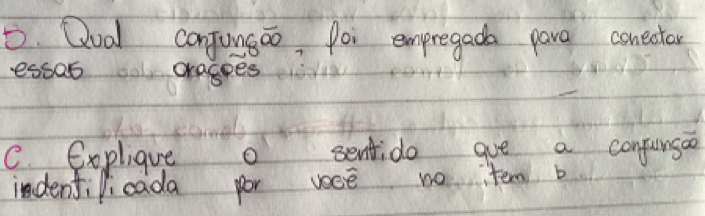 b. Qual conjunção, foi empregada para conectar
essas orações?
C. Explique o sentido que a conjunção
indentificada por você no item b